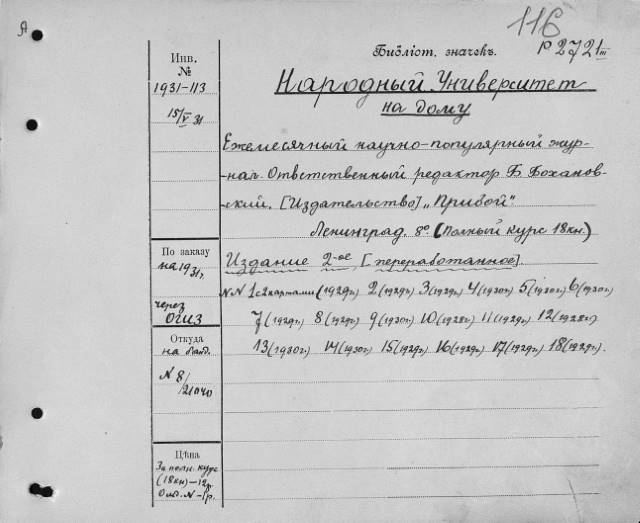 А
116
Библіот. значекъ. Р 2721 III
Народный Университет
на дому
Инв.
№
1931-113
15/V 31
Ежемесячный научно-популярный жур-
нал. Ответственный редактор Б. Бохановский
ский. [Издательство] „Прибой"
Ленинград. 8° (Полный курс 18 кн.)
Издание 2-ое [переработанное].
NN 1 с 2 картами (1929г.) 2 (1929г.) 3 (1929г.) 4 (1930г.) 5 (1930г.) 6 (1930г.)
7 (1929г.) 8 (1929г.) 9 (1930г.) 10 (1928г.) 11 (1929г.) 12 (1928г.)
13 (1930г.) 14 (1930г.) 15 (1929г.) 16 (1929г.) 17 (1929г.) 18 (1929г.).
По заказу
на 1931г.
через
ОГИЗ
Откуда
N 8/
21040
Цѣна
За полн. курс
(18 кн) – 12р.
Отд. N – 1р.